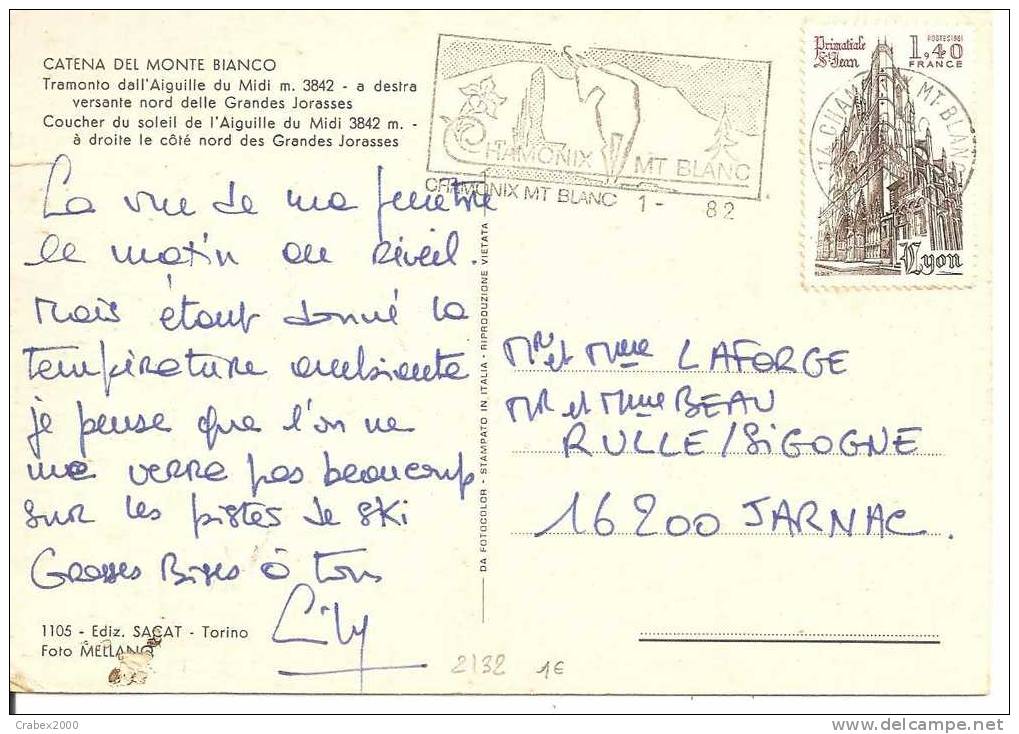 CATENA DEL MONTE BIANCO
Tramonto dall'Aiguille du Midi m. 3842 - a destra
versante nord delle Grandes Jorasses
Coucher du soleil de l'Aiguille du Midi 3842 m. -
à droite le côté nord des Grandes Jorasses
La vue de ma fenêtre
le matin au réveil.
Mais étant donné la
température ambiante
je pense que l'on ne
me verra pas beaucoup
sur les pistes de ski
Grosses Bises à tous
Lily
1105 - Ediz. SACAT - Torino
Foto MELLANO
DA FOTOCOLOR - STAMPATO IN ITALIA - RIPRODUZIONE VIETATA
CHAMONIX MT BLANC
CHAMONIX MT BLANC 1- 82
Primatiale
St Jean
POSTES 1981
1,40
FRANCE
74 CHAMONIX MT BLANC
Lyon
Mr et Mme LAFORGE
Mr et Mme BEAU
RULLE/SIGOGNE
16200 JARNAC.
2132 1€
Crabex2000
www.delcampe.net